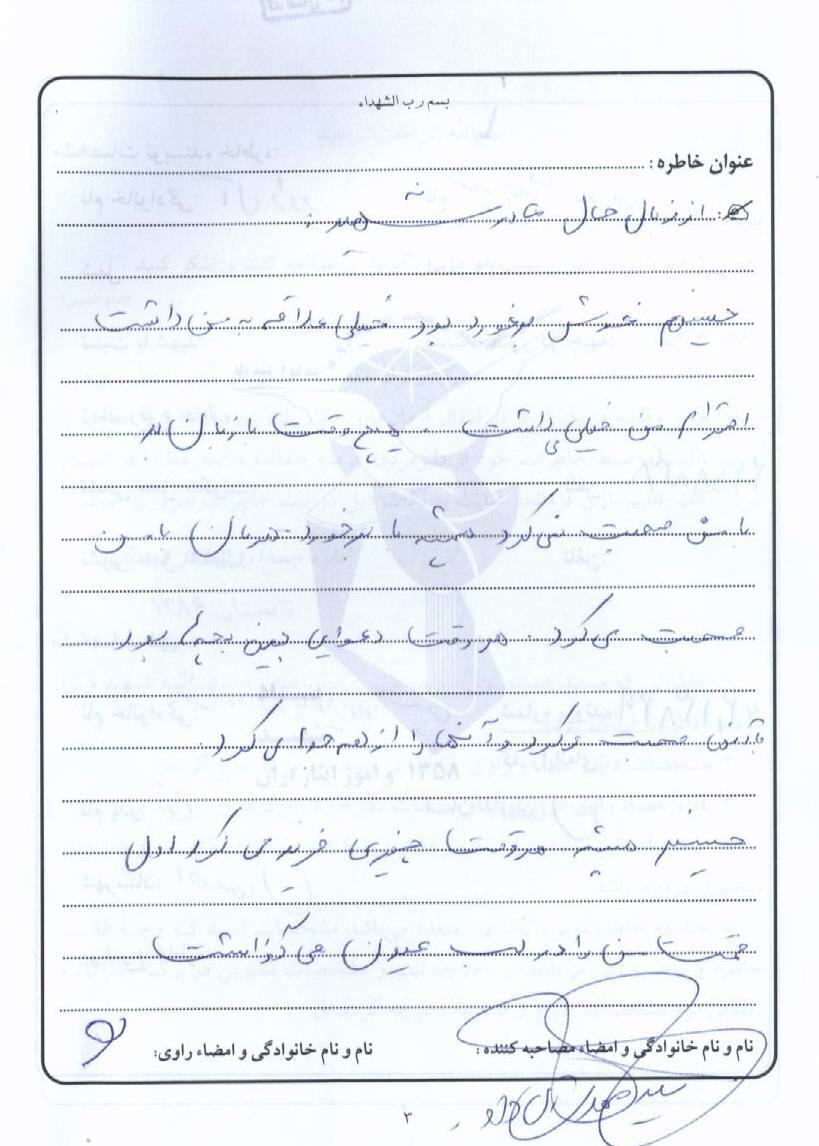 بسم رب الشهداء
عنوان خاطره :
از زبان حال مادر شهید :
حسینم خوش برخورد بود خیلی علاقه به من داشت
احترام من خیلی داشت . هیچ وقت با زبان بد
با من صحبت نمی کرد همیشه با برخورد مهربان با من
صحبت می کرد. هر وقت دعوایی بین بچه ها بود
با آنها صحبت می کرد و آنها را از هم جدا می کرد.
حسینم همیشه هر وقت چیزی خرید می کرد اول
قسمت من را در لب می گذاشت
نام و نام خانوادگی و امضاء مصاحبه کننده :
نام و نام خانوادگی و امضاء راوی:
سید
۳